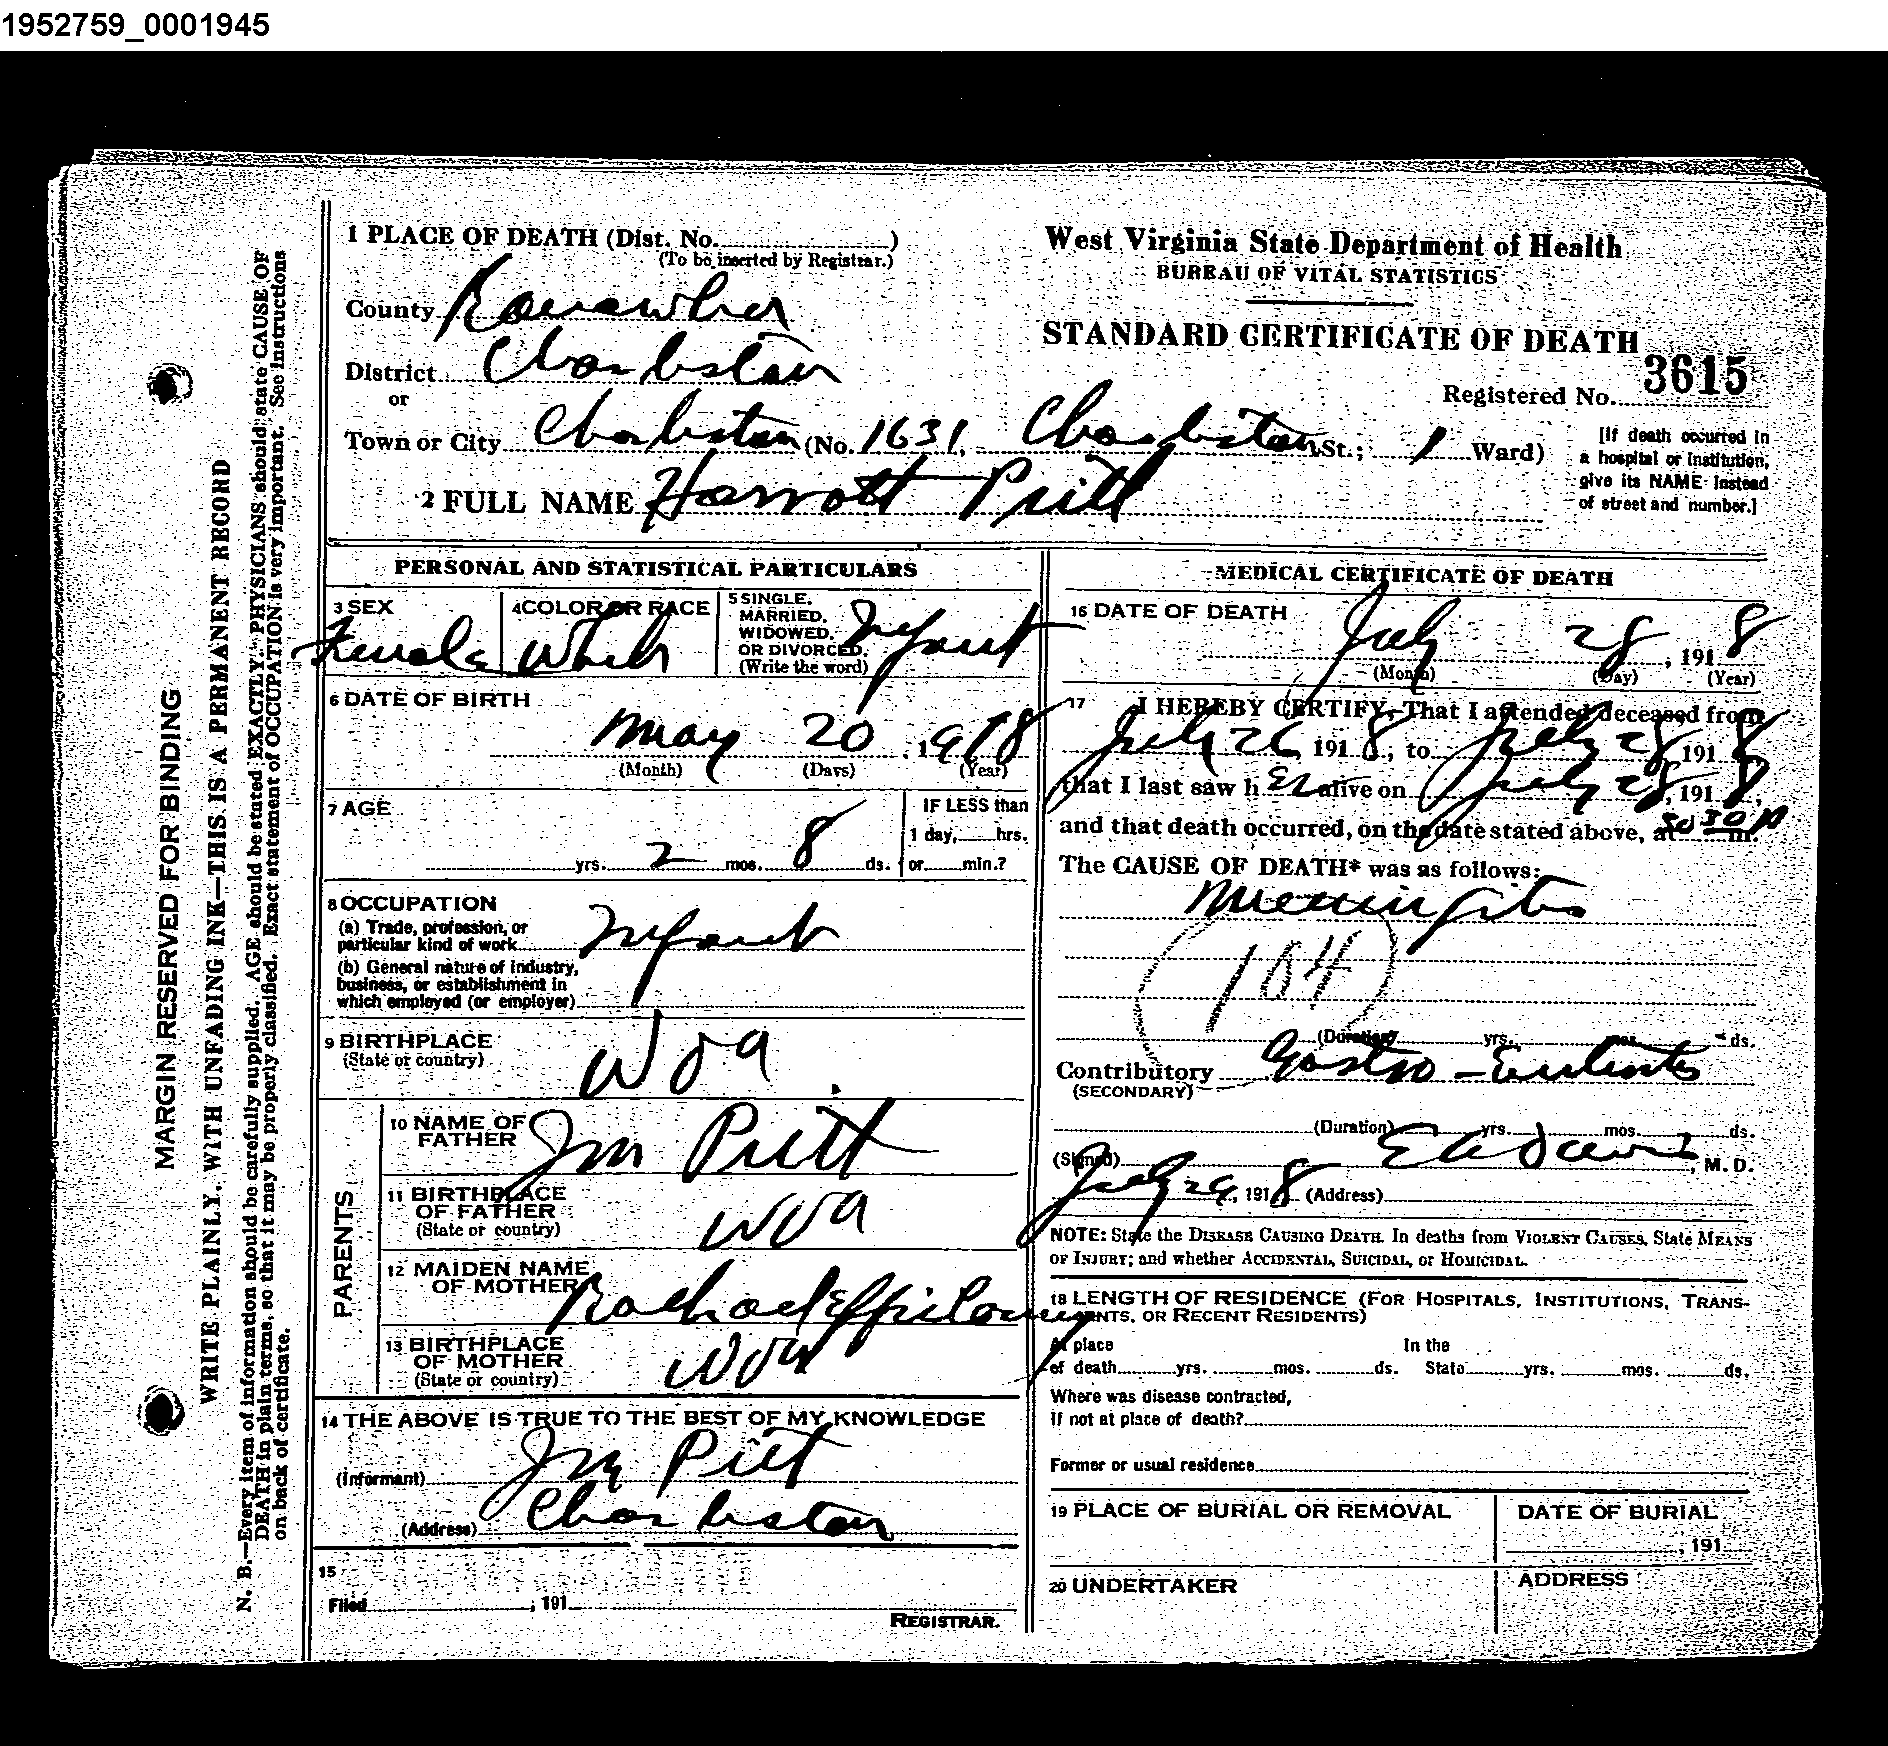 1952759_0001945
1 PLACE OF DEATH (Dist. No. )
(To be inserted by Registrar.)
County Kanawha
District Charleston
or
Town or City Charleston (No. 1631, Charleston St.; 1 Ward)
2 FULL NAME Harrott Pritt
West Virginia State Department of Health
BUREAU OF VITAL STATISTICS
STANDARD CERTIFICATE OF DEATH
Registered No. 3615
[If death occurred in
a hospital or institution,
give its NAME instead
of street and number.]
PERSONAL AND STATISTICAL PARTICULARS
3 SEX
Female
4 COLOR OR RACE
White
5 SINGLE,
MARRIED,
WIDOWED,
OR DIVORCED.
(Write the word)
Infant
6 DATE OF BIRTH
May 20, 1918
(Month) (Days) (Year)
7 AGE
yrs. 2 mos. 8 ds.
IF LESS than
1 day, hrs.
or min.?
8 OCCUPATION
(a) Trade, profession, or
particular kind of work Infant
(b) General nature of industry,
business, or establishment in
which employed (or employer)
9 BIRTHPLACE
(State or country)
W Va
PARENTS
10 NAME OF
FATHER
Jim Pritt
11 BIRTHPLACE
OF FATHER
(State or country)
W Va
12 MAIDEN NAME
OF MOTHER
13 BIRTHPLACE
OF MOTHER
(State or country)
W Va
14 THE ABOVE IS TRUE TO THE BEST OF MY KNOWLEDGE
(Informant) Jim Pritt
(Address) Charleston
15
Filed , 191
REGISTRAR.
MEDICAL CERTIFICATE OF DEATH
16 DATE OF DEATH
July 28, 1918
(Month) (Day) (Year)
17 I HEREBY CERTIFY, That I attended deceased from
July 26 1918, to July 28, 1918
that I last saw h er alive on July 28, 1918,
and that death occurred, on the date stated above, at m.
The CAUSE OF DEATH* was as follows:
Meningitis
(104)
(Duration) yrs. mos. ds.
Contributory Gastro-Enteritis
(SECONDARY)
(Duration) yrs. mos. ds.
(Signed) E A Davis, M. D.
July 29, 1918 (Address)
NOTE: State the DISEASE CAUSING DEATH. In deaths from VIOLENT CAUSES, State MEANS
OF INJURY; and whether ACCIDENTAL, SUICIDAL, or HOMICIDAL.
18 LENGTH OF RESIDENCE (FOR HOSPITALS, INSTITUTIONS, TRANS-
IENTS, OR RECENT RESIDENTS)
At place In the
of death yrs. mos. ds. State yrs. mos. ds.
Where was disease contracted,
if not at place of death?
Former or usual residence
19 PLACE OF BURIAL OR REMOVAL
DATE OF BURIAL
, 191
20 UNDERTAKER
ADDRESS
MARGIN RESERVED FOR BINDING
WRITE PLAINLY, WITH UNFADING INK—THIS IS A PERMANENT RECORD
N. B.—Every item of information should be carefully supplied. AGE should be stated EXACTLY. PHYSICIANS should state CAUSE OF
DEATH in plain terms, so that it may be properly classified. Exact statement of OCCUPATION is very important. See instructions
on back of certificate.